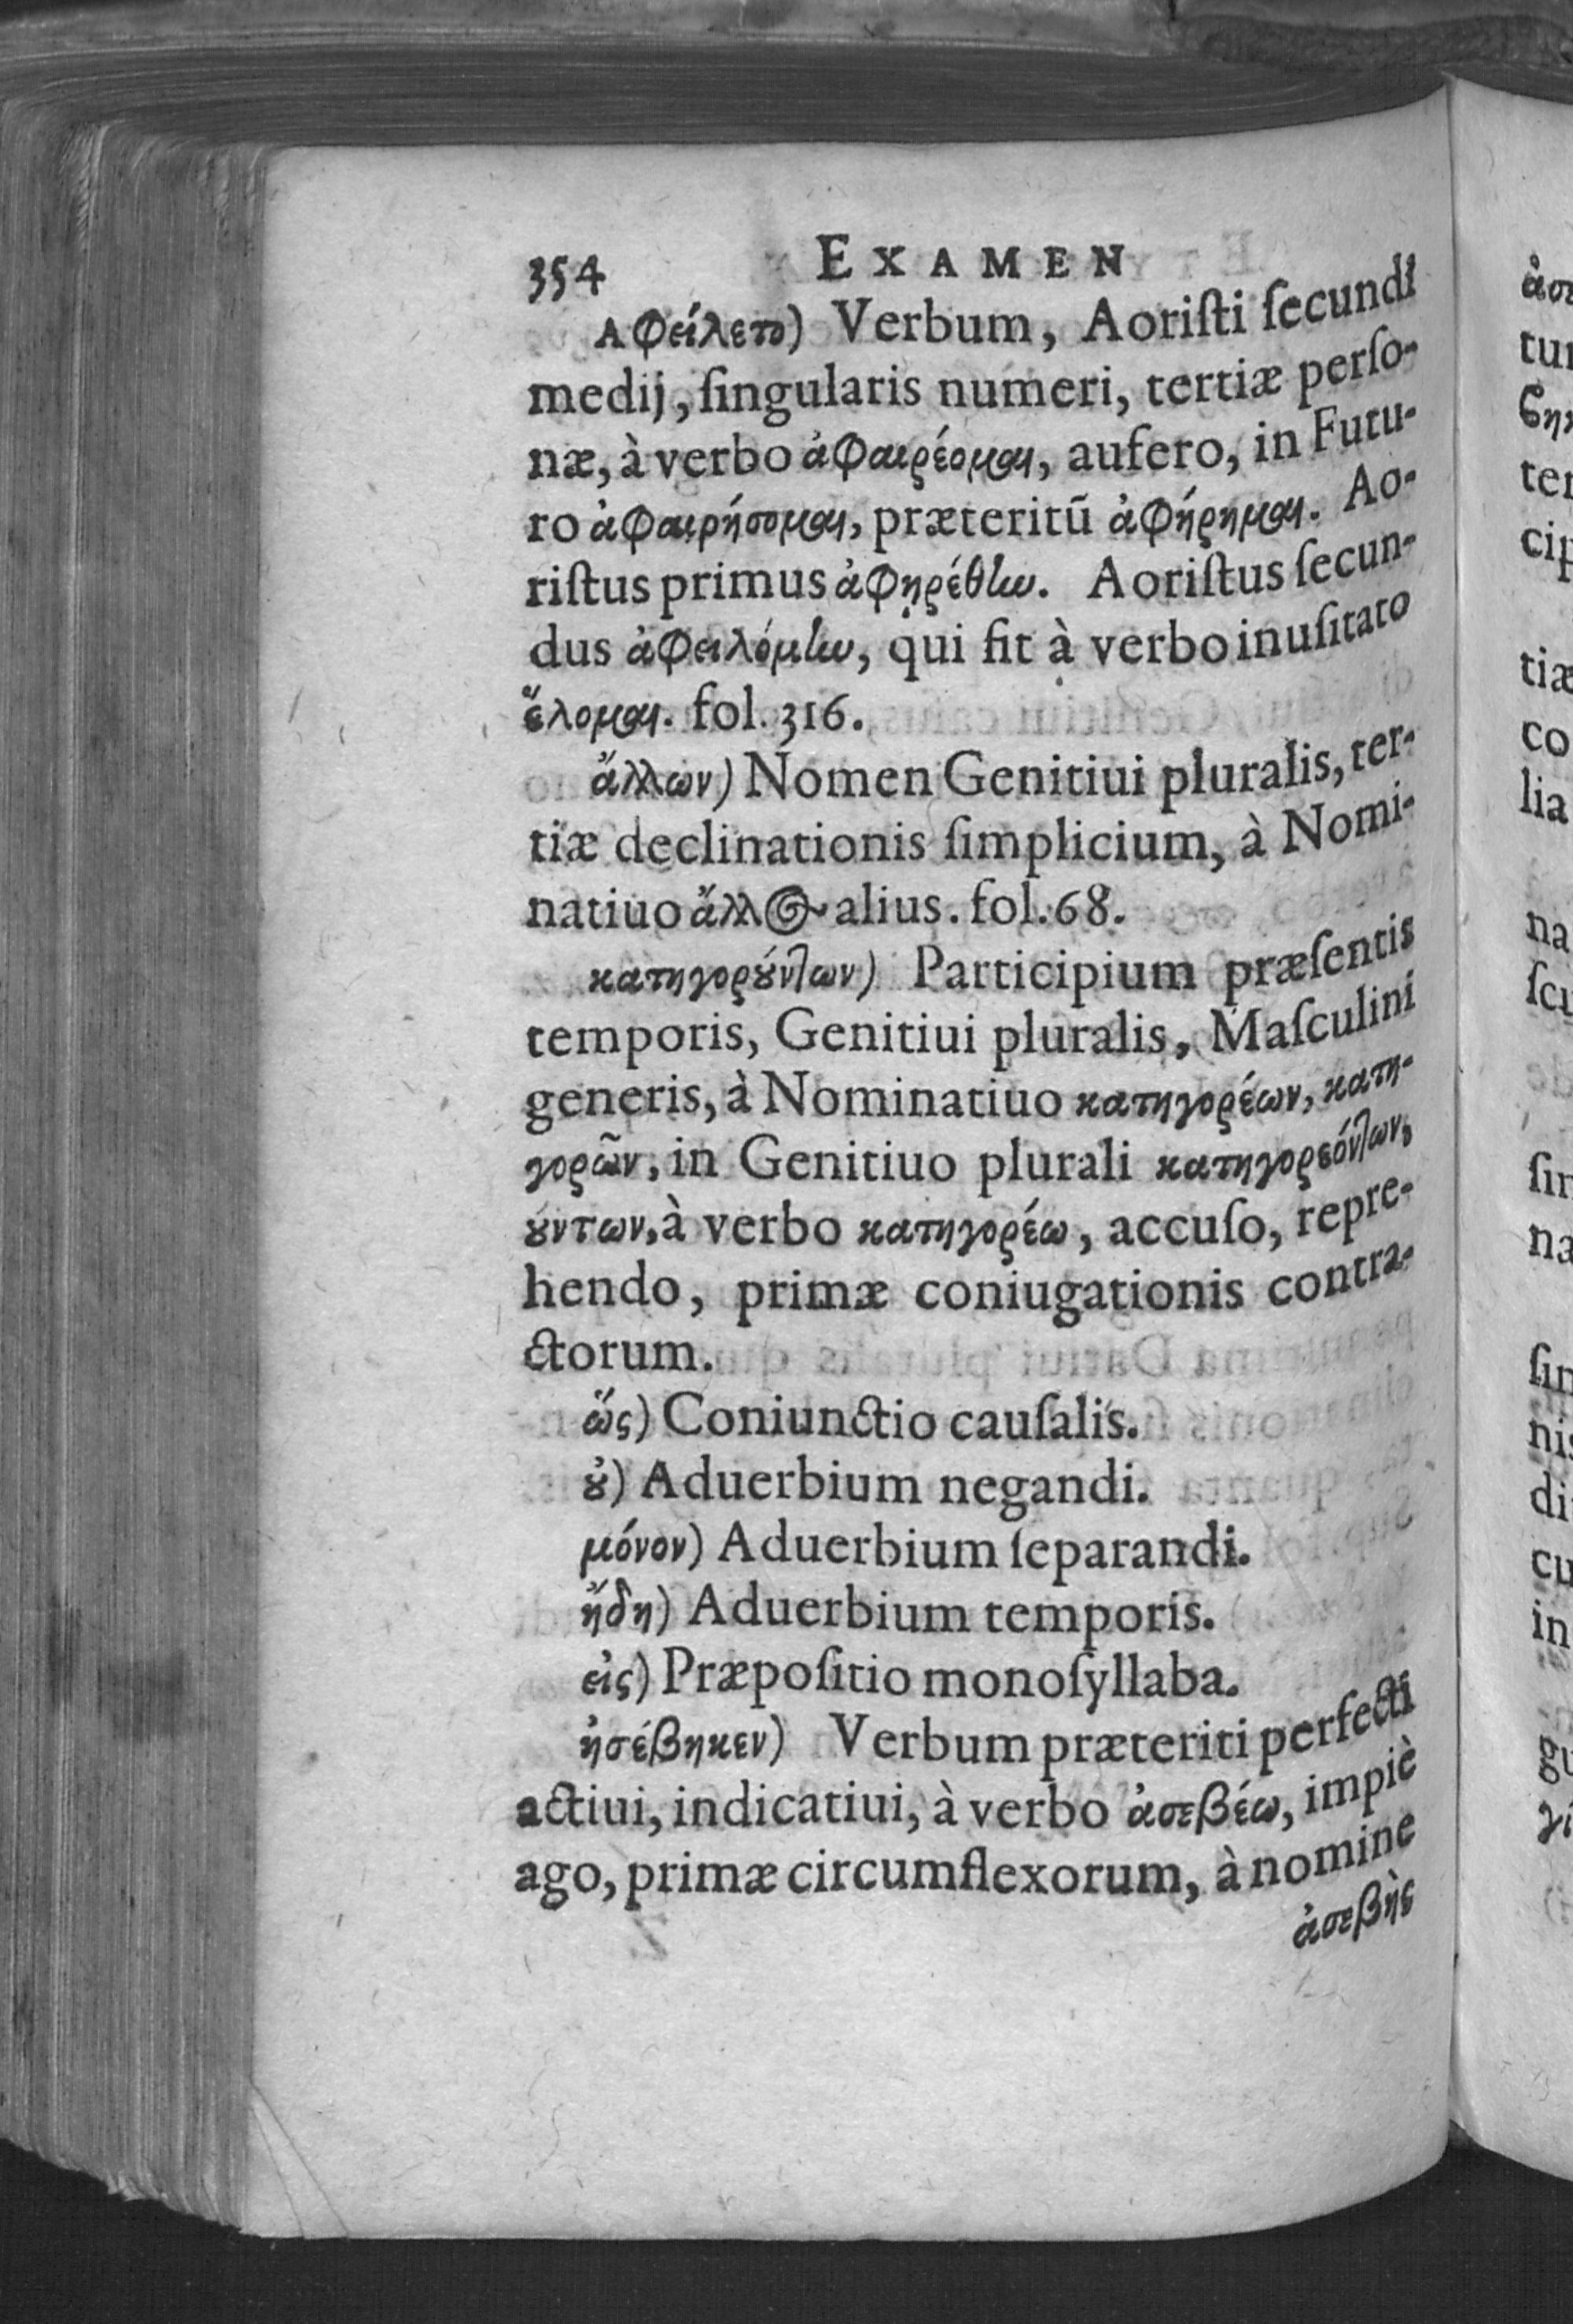 354 EXAMEN
Αφείλετο) Verbum, Aoriſti ſecundi
medij, ſingularis numeri, tertiæ perſo-
næ, à verbo ἀφαιρέομαι, aufero, in Futu-
ro ἀφαιρήσομαι, præteritū ἀφήρημαι. Ao-
riſtus primus ἀφῃρέθην. Aoriſtus ſecun-
dus ἀφειλόμην, qui fit à verbo inuſitato
ἕλομαι. fol. 316.
ἄλλων) Nomen Genitiui pluralis, ter-
tiæ declinationis ſimplicium, à Nomi-
natiuo ἄλλος alius. fol. 68.
κατηγορούντων) Participium præſentis
temporis, Genitiui pluralis, Maſculini
generis, à Nominatiuo κατηγορέων, κατη-
γορῶν, in Genitiuo plurali κατηγορεόντων,
ούντων, à verbo κατηγορέω, accuſo, repre-
hendo, primæ coniugationis contra-
ctorum.
ὥς) Coniunctio cauſalis.
οὐ) Aduerbium negandi.
μόνον) Aduerbium ſeparandi.
ἤδη) Aduerbium temporis.
εἰς) Præpoſitio monoſyllaba.
ἠσέβηκεν) Verbum præteriti perfecti
actiui, indicatiui, à verbo ἀσεβέω, impiè
ago, primæ circumflexorum, à nomine
ἀσεβὴς